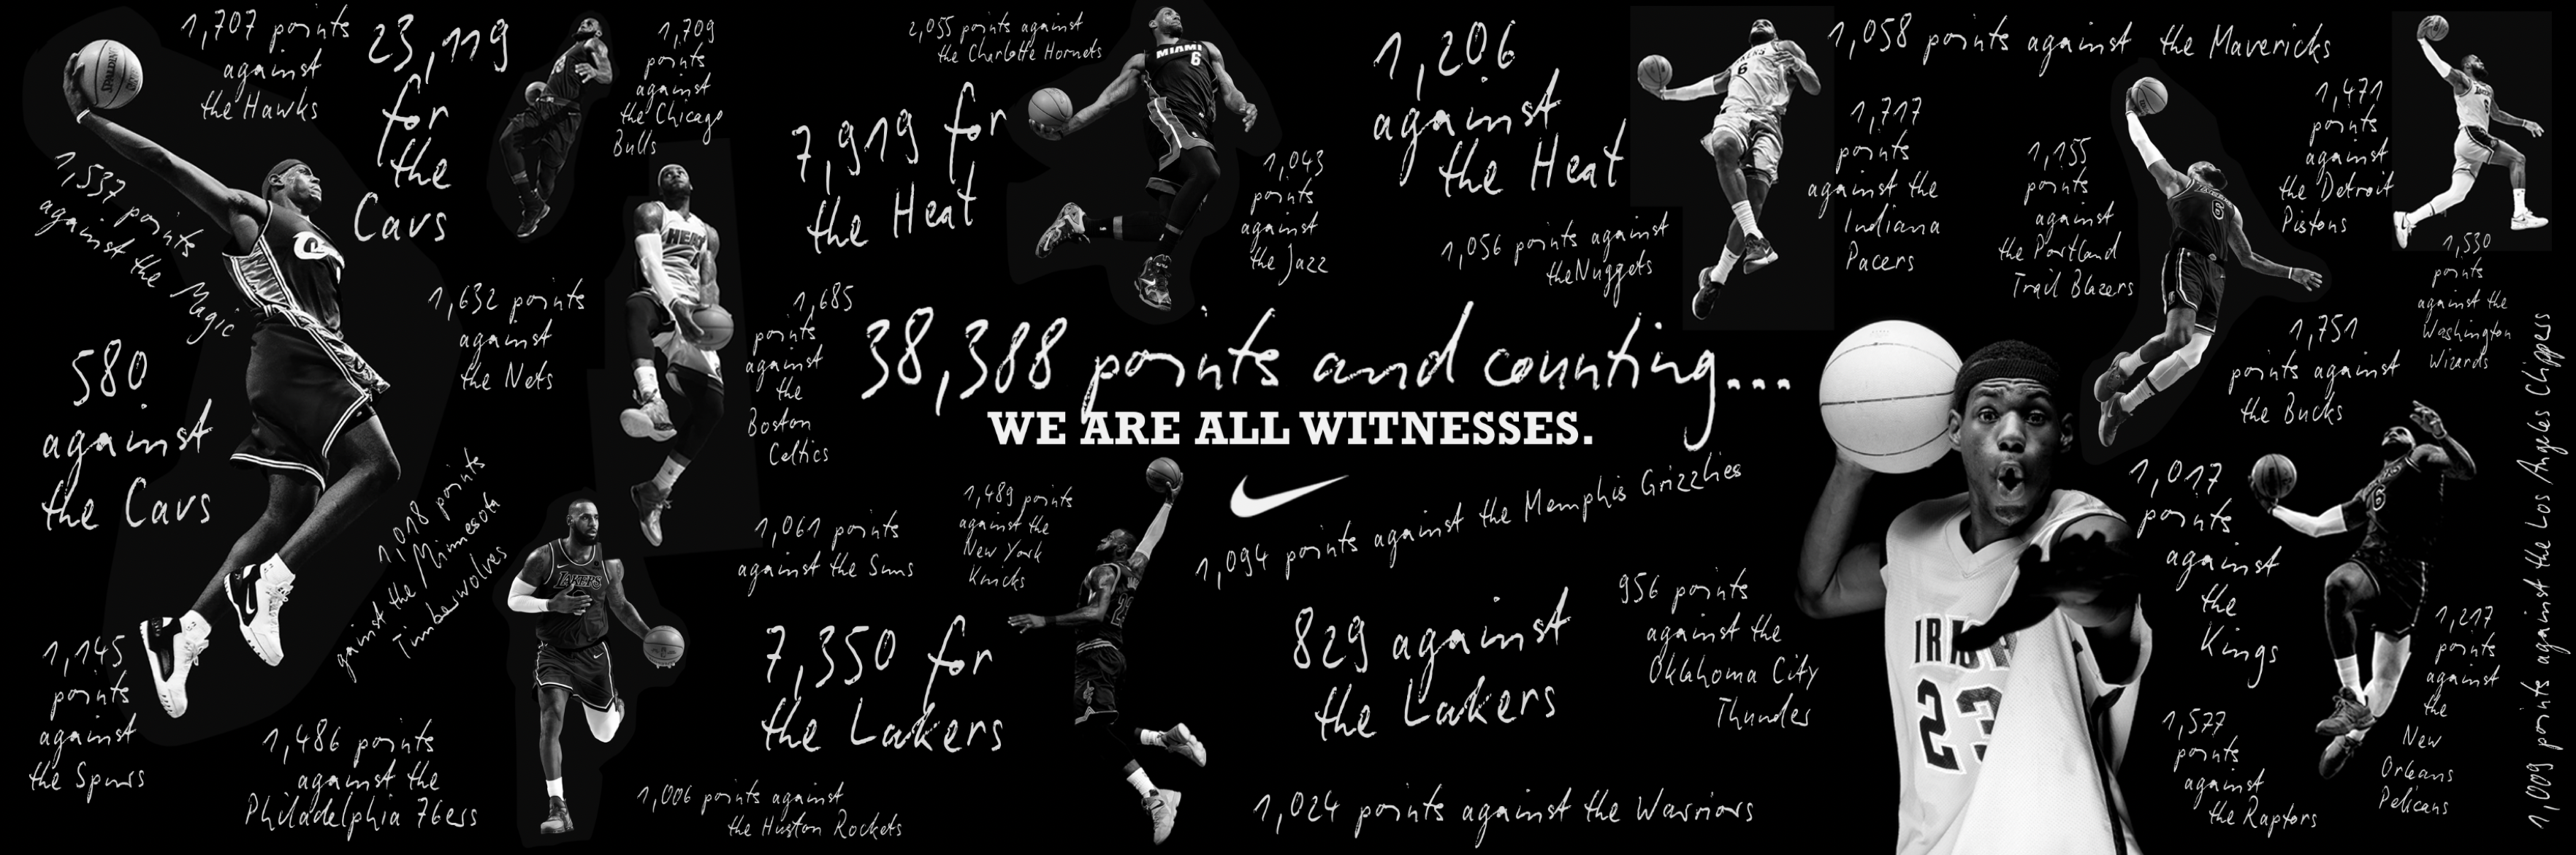 1,707 points
against
the Hawks
23,119
for
the
Cavs
1,709
points
against
the Chicago
Bulls
2,055 points against
the Charlotte Hornets
MIAMI
6
1,206
against
the Heat
6
1,058 points against the Mavericks
1,537 points
against the Magic
7,919 for
the Heat
1,043
points
against
the Jazz
1,056 points against
the Nuggets
1,717
points
against the
Indiana
Pacers
1,155
points
against
the Portland
Trail Blazers
6
1,471
points
against
the Detroit
Pistons
1,530
points
against the
Washington
Wizards
SPALDING
HEAT
1,632 points
against
the Nets
1,685
points
against
the
Boston
Celtics
38,388 points and counting...
WE ARE ALL WITNESSES.
1,751
points against
the Bucks
580
against
the Cavs
1,018 points
gainst the Minnesota
Timberwolves
LAKERS
1,061 points
against the Suns
1,489 points
against the
New York
Knicks
1,094 points against the Memphis Grizzlies
1,017
points
against
the
Kings
6
1,009 points against the Los Angeles Clippers
1,145
points
against
the Spurs
1,486 points
against the
Philadelphia 76ers
7,350 for
the Lakers
829 against
the Lakers
956 points
against the
Oklahoma City
Thunder
IRISH
23
1,217
points
against
the
New
Orleans
Pelicans
1,577
points
against
the Raptors
1,006 points against
the Huston Rockets
1,024 points against the Warriors